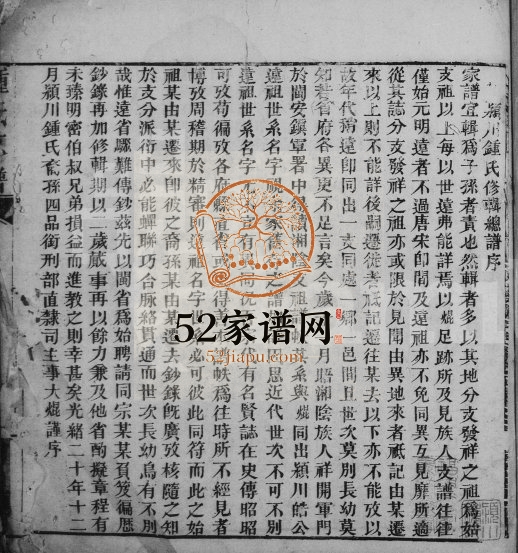 潁川鍾氏修輯總譜序
家譜宜輯為子孫者責也然輯者多以其地分支發祥之祖為始
支祖以上每以世遠弗能詳也焜足跡所及見族人支譜往往
僅始元明遠者不過唐宋即間及遠祖亦不免同異互見靡所適
從其誌分支發祥之祖亦或限於見聞由異地來者祇記由某遷
來以上則不能詳後嗣遷徙者祇記遷往某去以下亦不能攷以
故年代稍遠即同出一支同處一鄉一邑間且世次莫別長幼莫
知省府各異更不足言矣今歲月晤湘陰族人祥開軍門
於閩安鎮軍署中湘陰支祖系與焜同出潁川皓公
遠祖世系名字家舊思近代世次不可不別
遠祖世系名字不有名賢誌在史傳昭昭
可攷苟徧攷各府縣或得為往時所不經見者
博攷周稽期於精審則遠祖名字必可彼此同符而此之始
祖某由某遷來即彼之裔孫某由某遷去鈔錄既廣攷核隨之知
於支分派衍中必能蟬聯巧合脈絡貫通而世次長幼烏有不別
哉惟遠省郵難傳鈔茲先以閩省為始聘請同宗某某負笈徧歷
鈔錄再加修輯期以二歲蕆事再以餘力兼及他省酌擬章程有
未臻明密伯叔兄弟損益而進教之則幸甚矣光緒二十年十二
月潁川鍾氏裔孫四品銜刑部直隸司主事大焜謹序
52家谱网
52jiapu.com